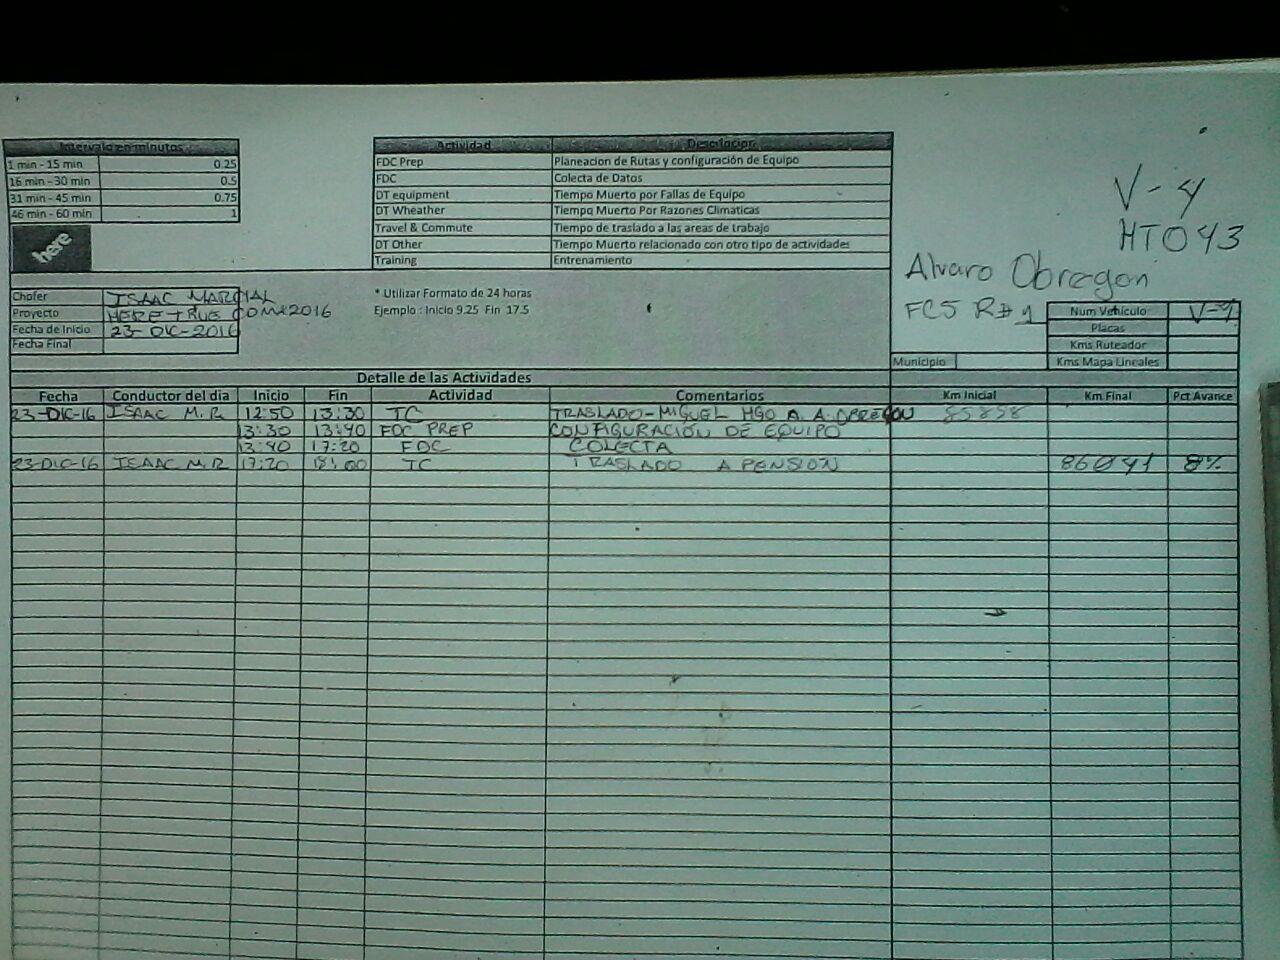 Intervalo en minutos
1 min - 15 min 0.25
16 min - 30 min 0.5
31 min - 45 min 0.75
46 min - 60 min 1
here
Actividad Descripcion
FDC Prep Planeacion de Rutas y configuración de Equipo
FDC Colecta de Datos
DT equipment Tiempo Muerto por Fallas de Equipo
DT Wheather Tiempo Muerto Por Razones Climaticas
Travel & Commute Tiempo de traslado a las areas de trabajo
DT Other Tiempo Muerto relacionado con otro tipo de actividades
Training Entrenamiento
V-4
HT043
Alvaro Obregon
FCS R#1
Chofer ISAAC MARCIAL
Proyecto HERE TRUE CDMX2016
Fecha de Inicio 23-DIC-2016
Fecha Final
* Utilizar Formato de 24 horas
Ejemplo : Inicio 9.25 Fin 17.5
Num Vehículo V-4
Placas
Kms Ruteador
Municipio Kms Mapa Lineales
Detalle de las Actividades
Fecha Conductor del dia Inicio Fin Actividad Comentarios Km Inicial Km Final Pct Avance
23-DIC-16 ISAAC M.R 12:50 13:30 TC TRASLADO-MIGUEL HGO A A.OBREGON 85858
13:30 13:40 FDC PREP CONFIGURACIÓN DE EQUIPO
13:40 17:20 FDC COLECTA
23-DIC-16 ISAAC M.R 17:20 18:00 TC TRASLADO A PENSION 86041 8%